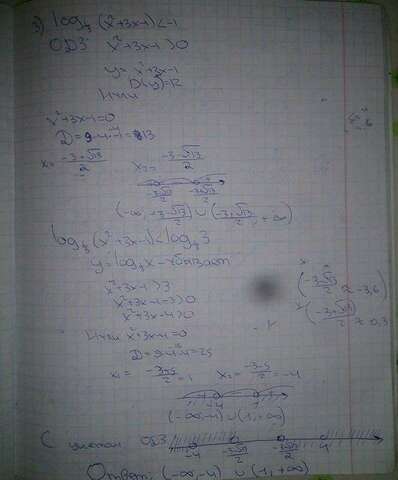 3) log⅓ (x²+3x-1) < -1
ОДЗ x²+3x-1>0
y = x²+3x-1
D(y)=R
Нули
x²+3x-1=0
D=9-4·(-1)=13
x₁= (-3+√13)/2 x₂= (-3-√13)/2
(-3-√13)/2 (-3+√13)/2
(-∞; (-3-√13)/2) ∪ ((-3+√13)/2; +∞)
log⅓ (x²+3x-1) < log⅓ 3
y=log⅓ x - убывает
x²+3x-1 > 3
x²+3x-1-3>0
x²+3x-4>0
Нули x²+3x-4=0
D=9-4·(-4)=25
x₁= (-3+5)/2 = 1 x₂= (-3-5)/2 = -4
-4 1
(-∞;-4) ∪ (1;+∞)
(-3-√13)/2 ≈ -3,6
(-3+√13)/2 ≈ 0,3
С учетом ОДЗ
-4 (-3-√13)/2 (-3+√13)/2 1
Ответ: (-∞;-4) ∪ (1;+∞)